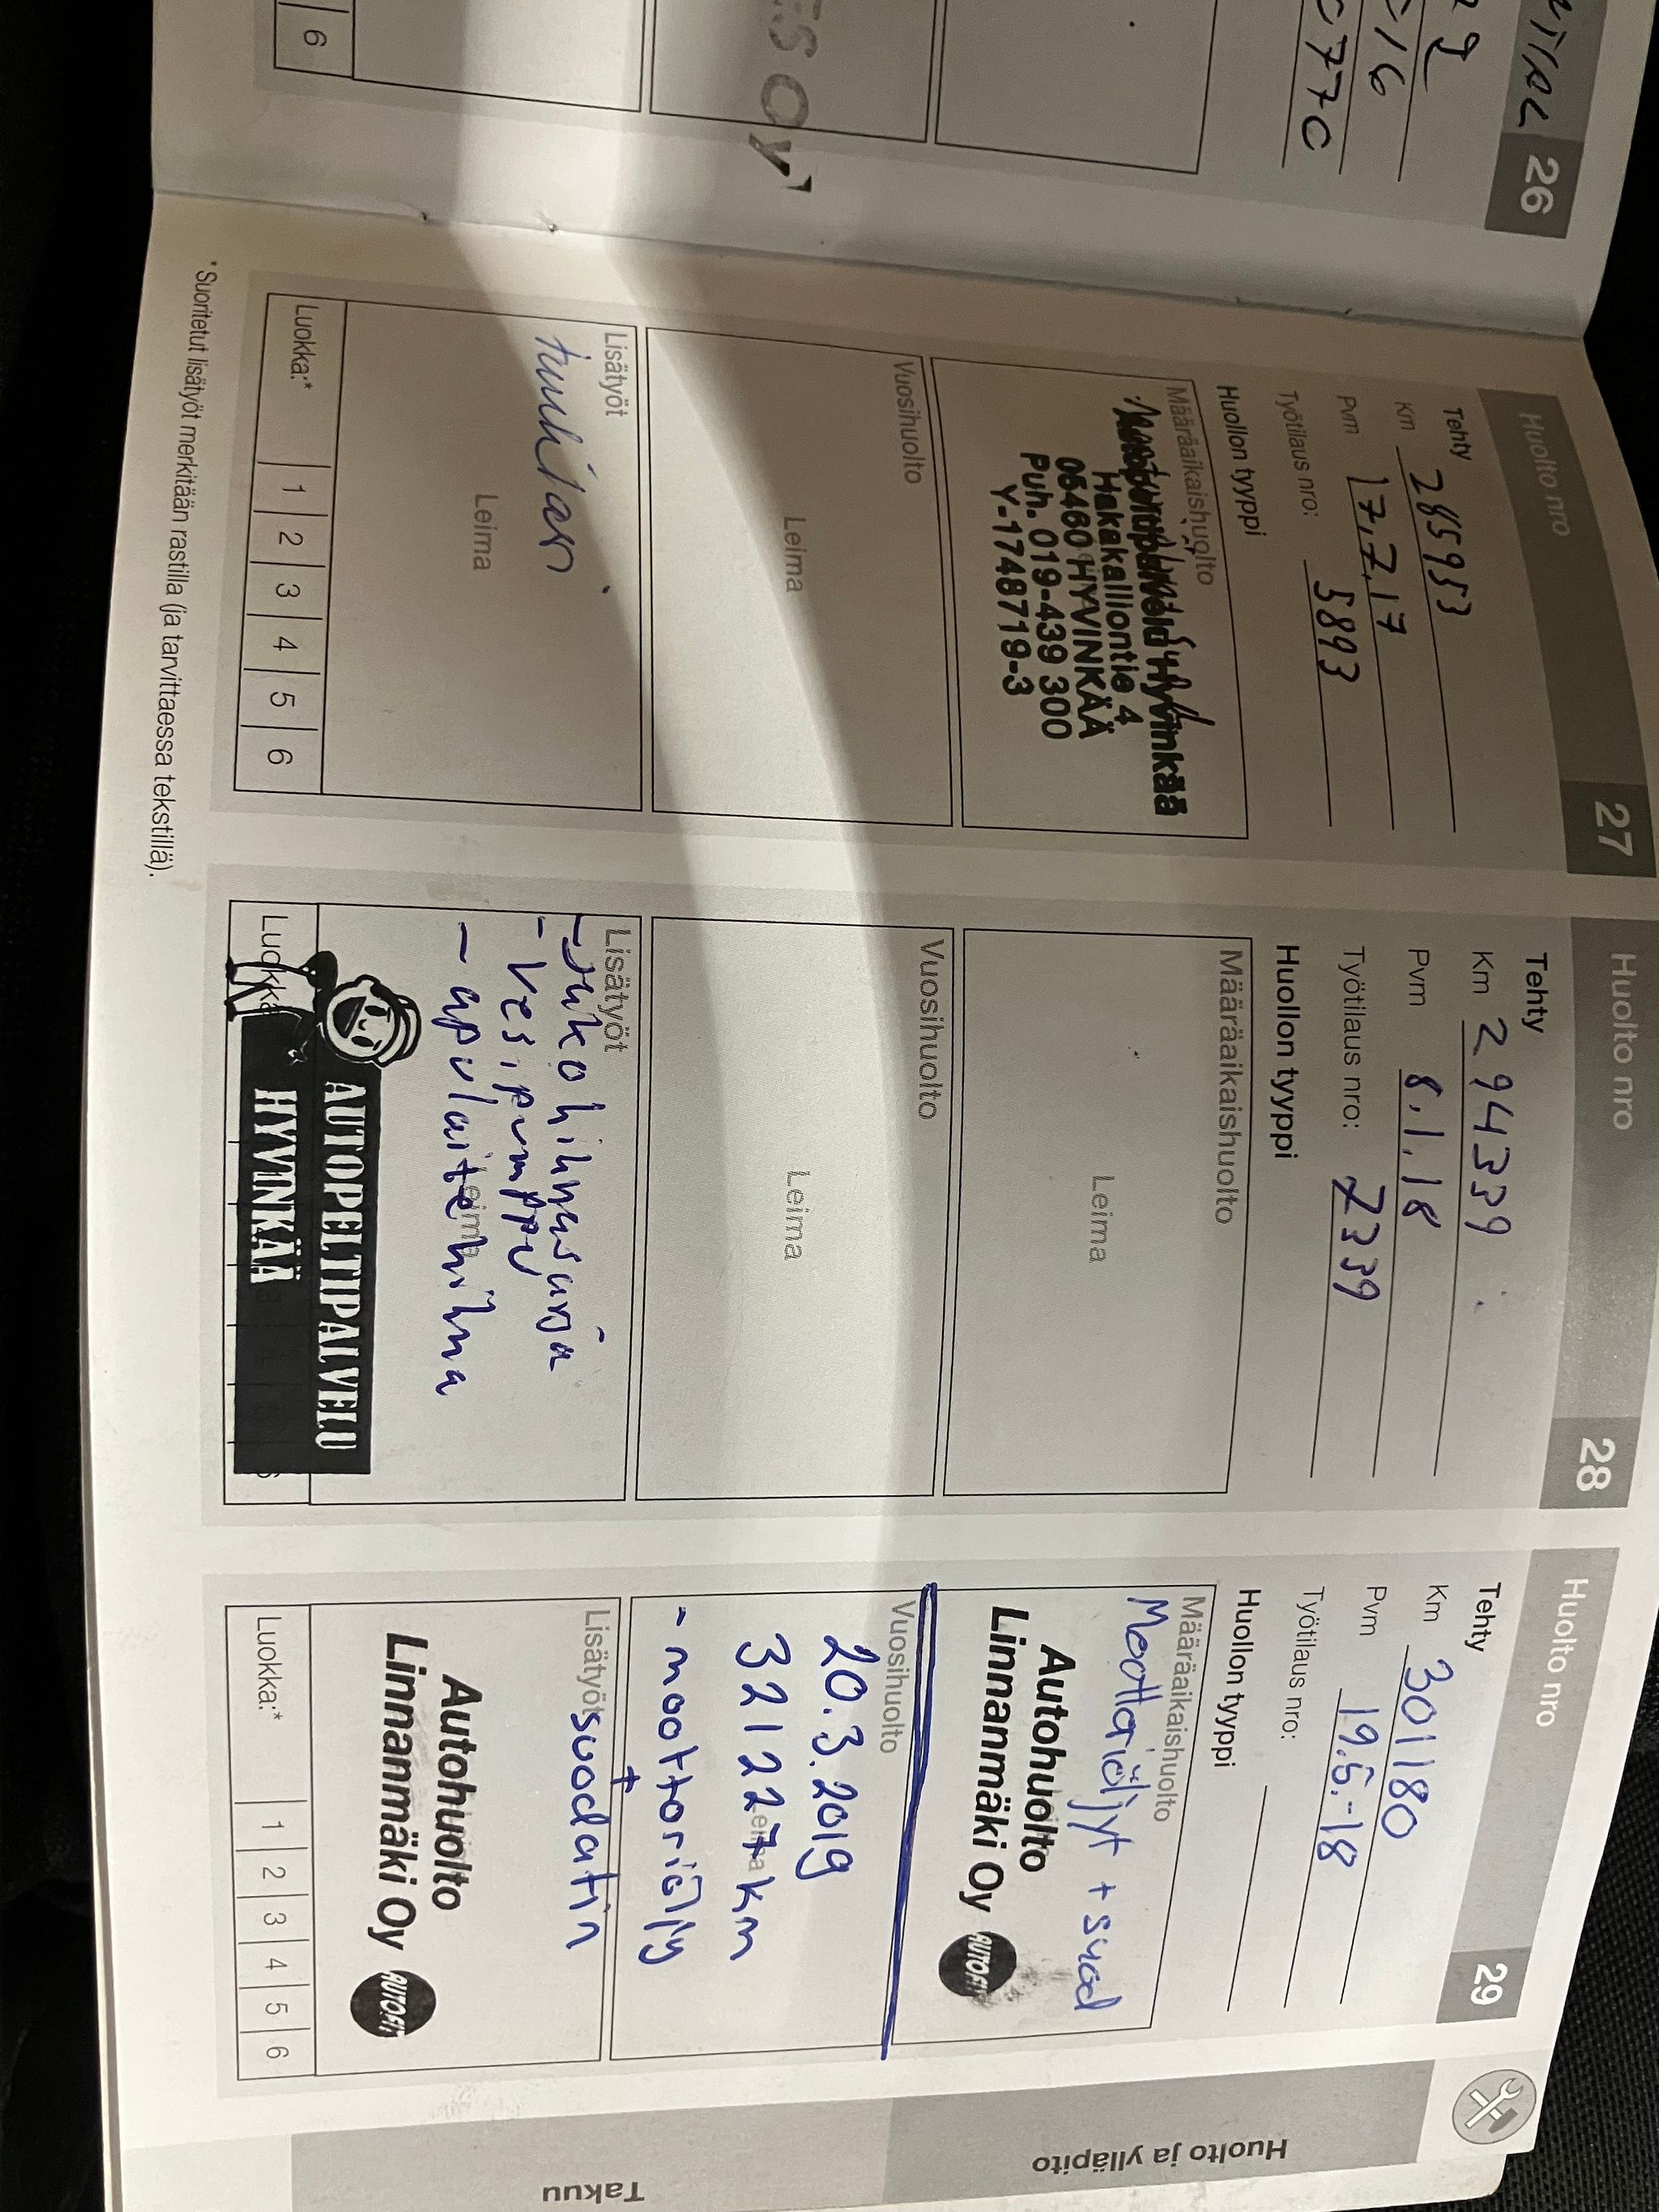 26
C770
6
ES OY
Huolto nro 27
Tehty
Km 285953
Pvm 17.7.17
Työtilaus nro: 5893
Huollon tyyppi
Määräaikaishuolto
Hakakalliontie 4
05460 HYVINKÄÄ
Puh. 019-439 300
Y-1748719-3
Vuosihuolto
Leima
Lisätyöt
Leima
Luokka:* 1 2 3 4 5 6
* Suoritetut lisätyöt merkitään rastilla (ja tarvittaessa tekstillä).
Huolto nro 28
Tehty
Km 294339
Pvm 8.1.18
Työtilaus nro: 7339
Huollon tyyppi
Määräaikaishuolto
Leima
Vuosihuolto
Leima
Lisätyöt
- Jakohihnasarja
- vesipumppu
- apulaitehihna
AUTOPELTIPALVELU
HYVINKÄÄ
Huolto nro 29
Tehty
Km 301180
Pvm 19.6.-18
Työtilaus nro:
Huollon tyyppi
Määräaikaishuolto
Moottoriöljyt + suod
Autohuolto
Linnanmäki Oy AUTOFIT
Vuosihuolto
20.3.2019
321227 km
- moottoriöljy
+
Lisätyöt suodatin
Autohuolto
Linnanmäki Oy AUTOFIT
Luokka:* 1 2 3 4 5 6
Huolto ja ylläpito
Takuu